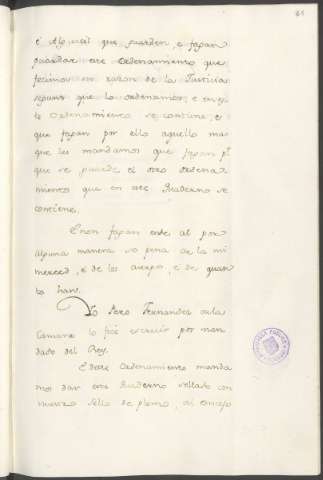 41
é Alguacil que guarden, e fagan
guardar este Ordenamiento que
fecimos en razon de la Justicia
segunt que lo ordenamos, e en es
te Ordenamiento se contiene, e
que fagan por ello aquello mas
que les mandamos que fagan pr.
que se guarde el otro Ordena
miento que en este Quaderno se
contiene.
E non fagan ende al por
alguna manera so pena de la mi
merced, e de los cuerpos, e de quan
to han.
Yo Pero Fernandez de la
Camara lo fice escribir por man
dado del Rey.
E deste Ordenamiento manda
mos dar este Quaderno sellado con
nuestro sello de plomo, al concejo